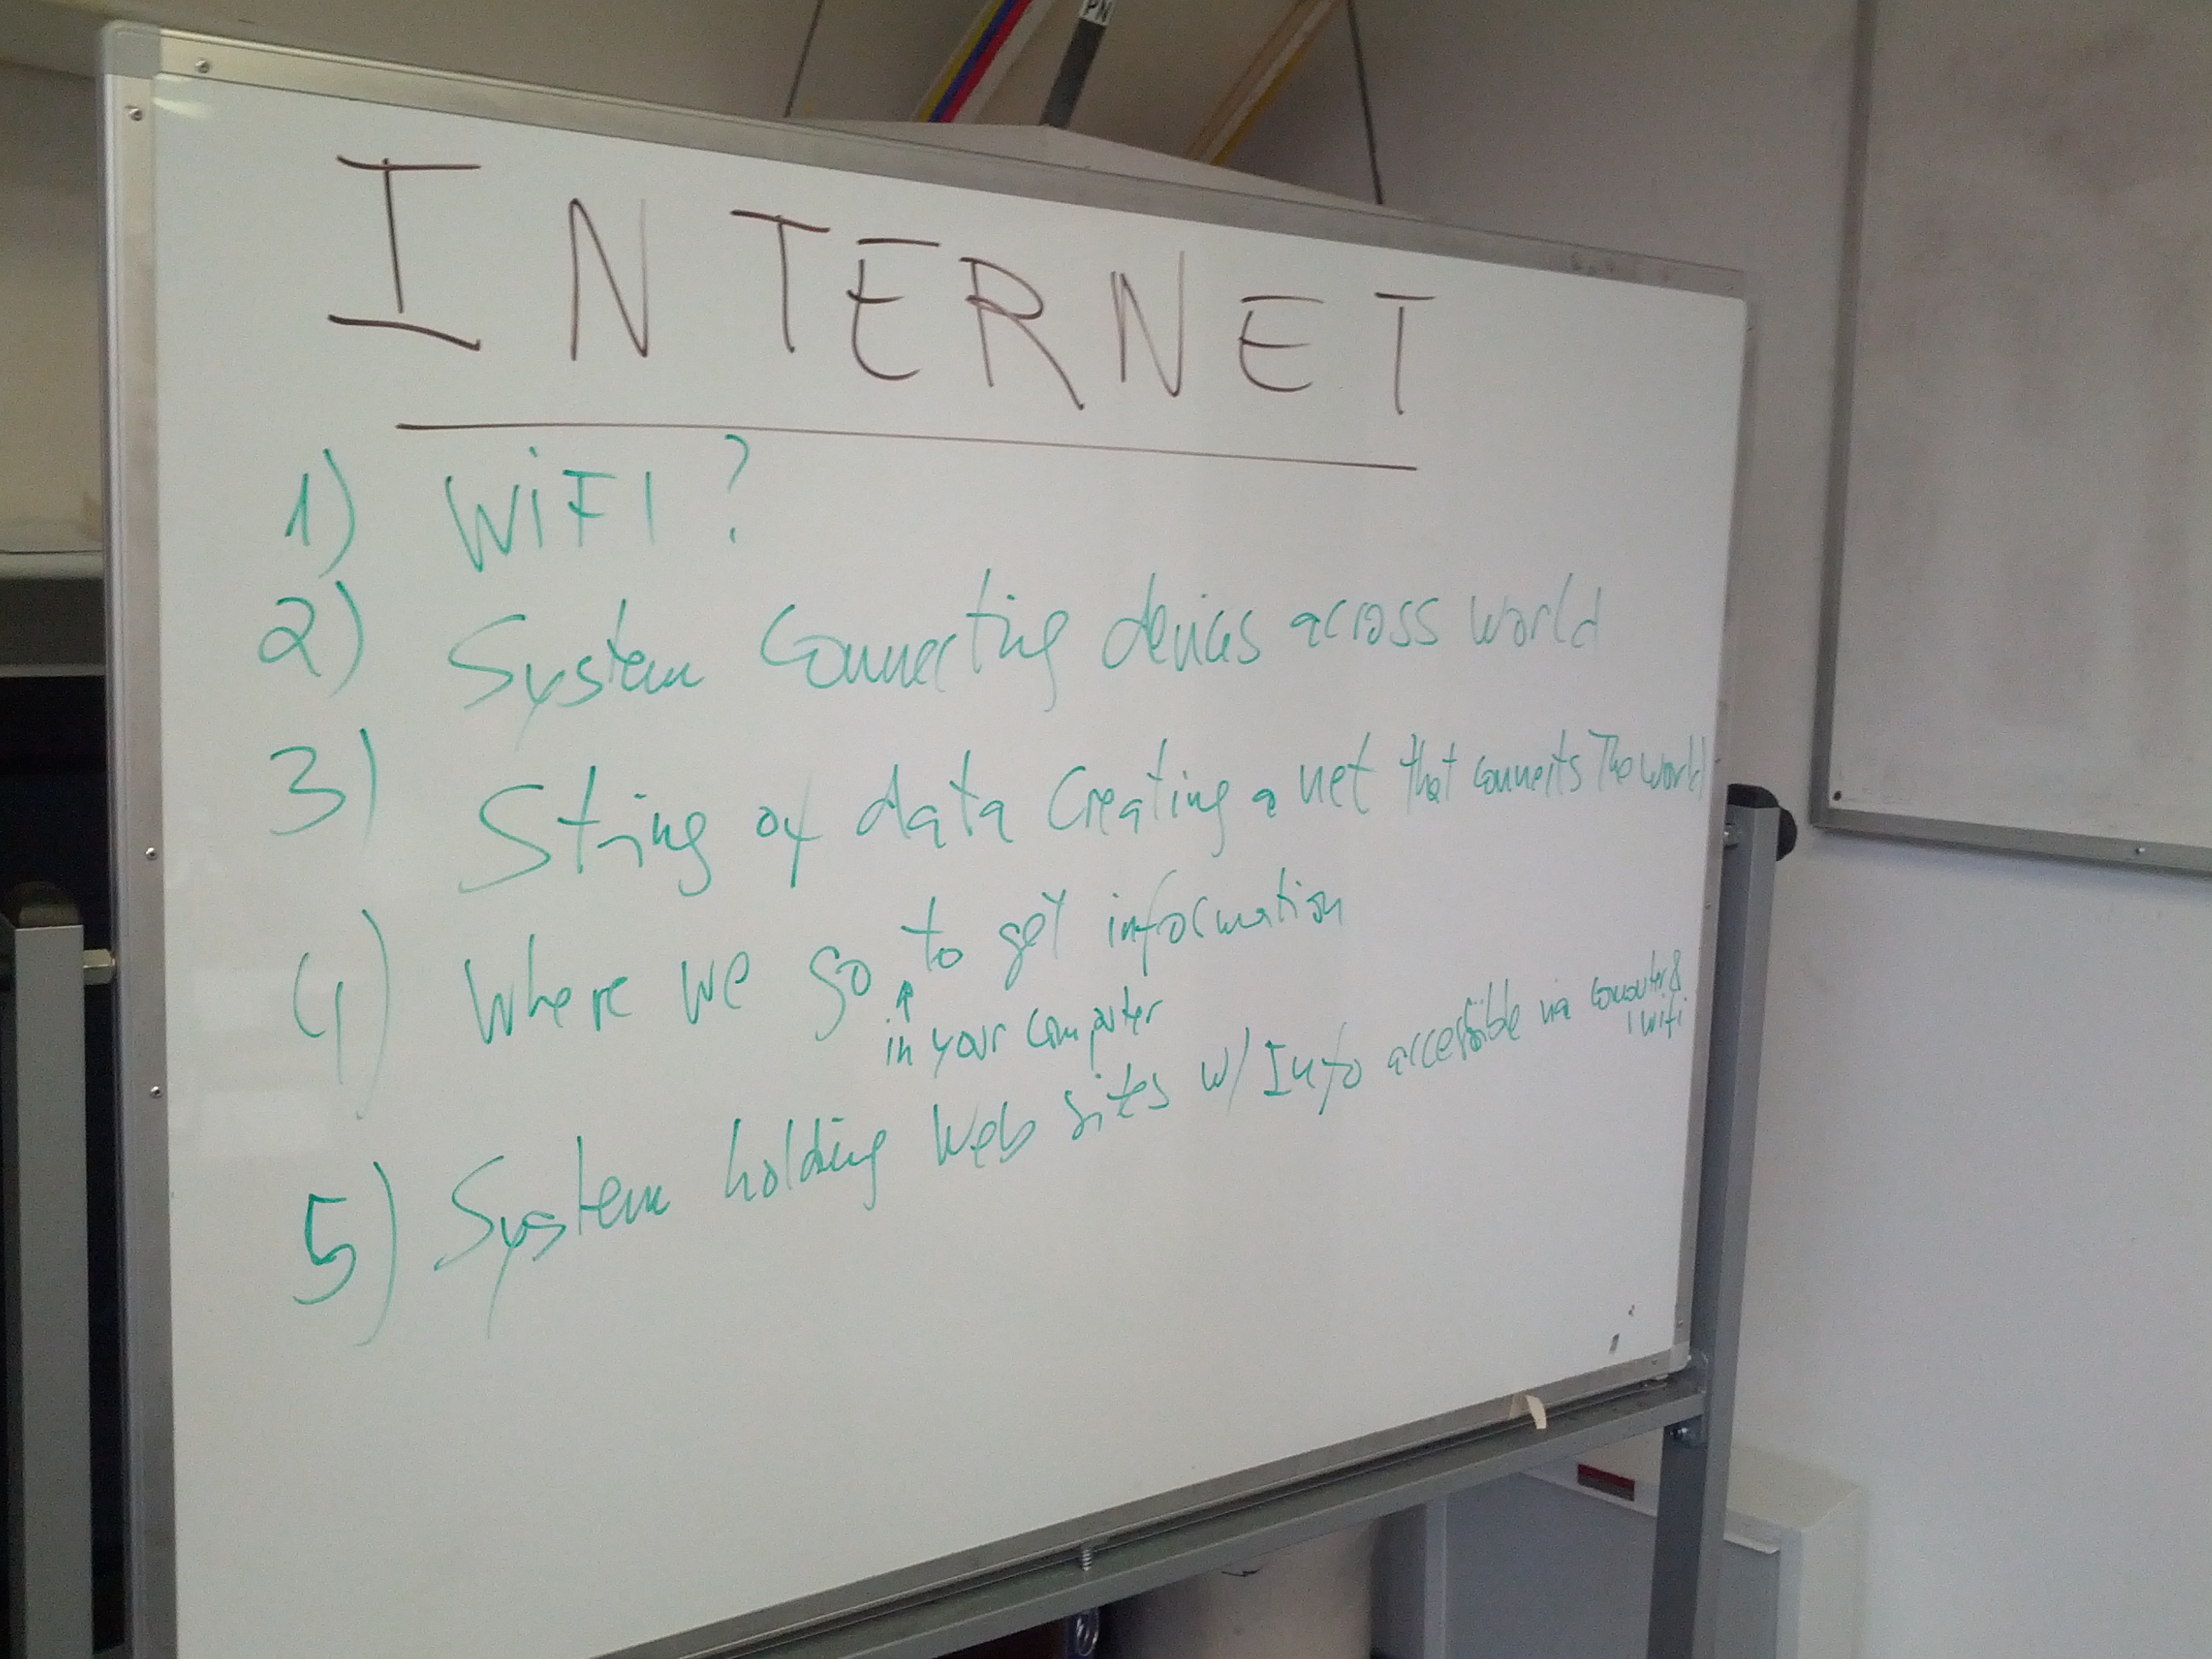 PN
INTERNET
1) WiFI?
2) System Connecting devices across world
3) String of data Creating a net that connects The world
4) Where we go to get information
in your Computer
5) System holding Web sites w/ Info accessible via computer &
wifi